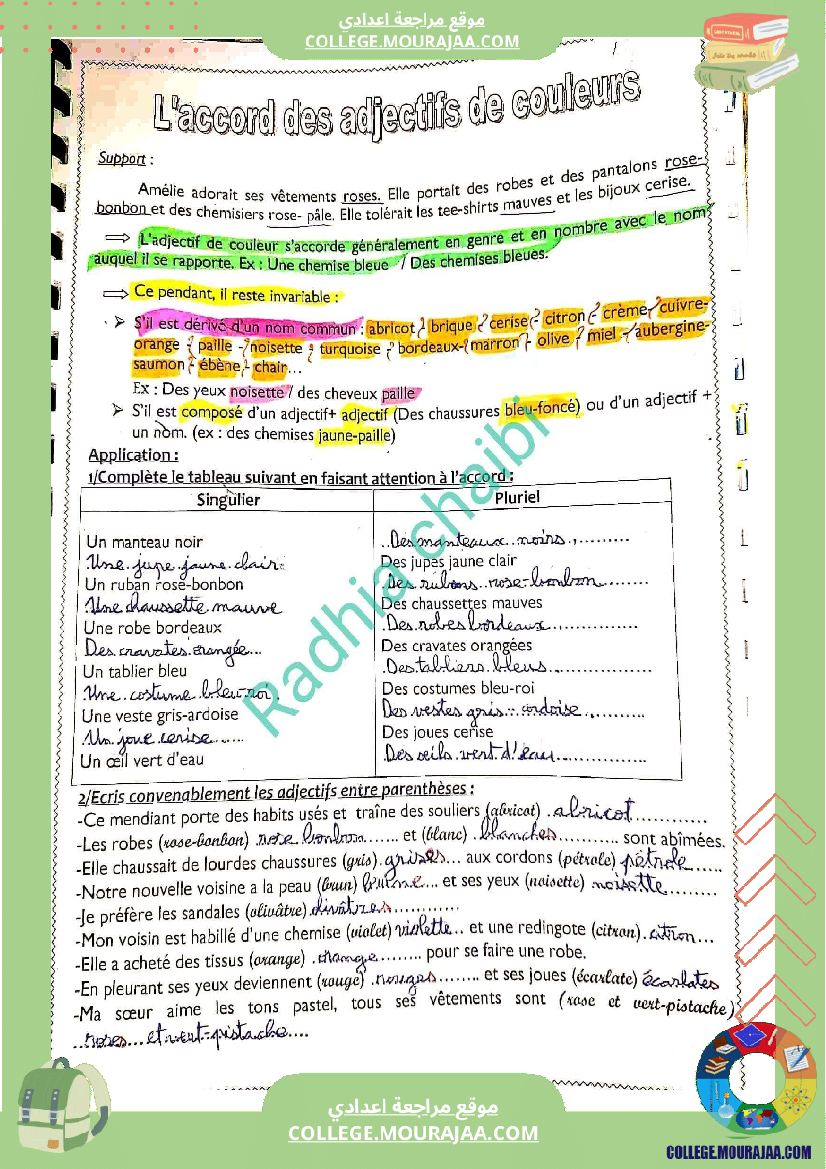 موقع مراجعة اعدادي
COLLEGE.MOURAJAA.COM
L'accord des adjectifs de couleurs
Support :
Amélie adorait ses vêtements roses. Elle portait des robes et des pantalons rose-
bonbon et des chemisiers rose- pâle. Elle tolérait les tee-shirts mauves et les bijoux cerise.
⇒ L'adjectif de couleur s'accorde généralement en genre et en nombre avec le nom
auquel il se rapporte. Ex : Une chemise bleue / Des chemises bleues.
⇒ Ce pendant, il reste invariable :
➤ S'il est dérivé d'un nom commun : abricot - brique - cerise - citron - crème - cuivre-
orange - paille - noisette - turquoise - bordeaux - marron - olive - miel - aubergine-
saumon - ébène - chair...
Ex : Des yeux noisette / des cheveux paille
➤ S'il est composé d'un adjectif+ adjectif (Des chaussures bleu-foncé) ou d'un adjectif +
un nom. (ex : des chemises jaune-paille)
Application :
1/Complète le tableau suivant en faisant attention à l'accord :
Singulier Pluriel
Un manteau noir Des manteaux noirs
Une jupe jaune clair Des jupes jaune clair
Un ruban rose-bonbon Des rubans rose-bonbon
Une chaussette mauve Des chaussettes mauves
Une robe bordeaux Des robes bordeaux
Des cravates orangée Des cravates orangées
Un tablier bleu Des tabliers bleus
Une costume bleu-roi Des costumes bleu-roi
Une veste gris-ardoise Des vestes gris-ardoise
Un joue cerise Des joues cerise
Un œil vert d'eau Des œils vert d'eau
2/Ecris convenablement les adjectifs entre parenthèses :
-Ce mendiant porte des habits usés et traîne des souliers (abricot) abricot
-Les robes (rose-bonbon) rose bonbon et (blanc) blanches sont abîmées.
-Elle chaussait de lourdes chaussures (gris) grises aux cordons (pétrole) pétrole
-Notre nouvelle voisine a la peau (brun) brune et ses yeux (noisette) noisette
-Je préfère les sandales (olivâtre) olivâtres
-Mon voisin est habillé d'une chemise (violet) violette et une redingote (citron) citron
-Elle a acheté des tissus (orange) orange pour se faire une robe.
-En pleurant ses yeux deviennent (rouge) rouges et ses joues (écarlate) écarlates
-Ma sœur aime les tons pastel, tous ses vêtements sont (rose et vert-pistache)
roses et vert-pistache
Radhia chaibi
موقع مراجعة اعدادي
COLLEGE.MOURAJAA.COM
COLLEGE.MOURAJAA.COM